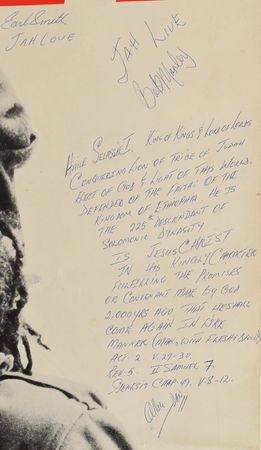 Earl Smith
JAH LOVE
JAH LIVE
Bob Marley
Haile Selassie I, KING OF KINGS & LORD OF LORDS
CONQUERING LION OF TRIBE OF JUDAH
ELECT OF GOD & LIGHT OF THIS WORLD.
DEFENDER OF THE FAITH: OF THE
KINGDOM OF ETHIOPIA HE IS
THE 225th DESCENDANT OF
SOLOMONIC DYNASTY
IS JESUS CHRIST
IN HIS KINGLY CHARACTER
FULFILLING THE PROMISES
OR COVENANT MADE BY GOD
2,000 YRS AGO THAT HE SHALL
COME AGAIN IN LIKE
MANNER (MAN, WITH FLESH & BLOOD)
ACT. 2 V. 29-30,
REV. 5 II SAMUEL 7.
GENESIS CHAP. 49, V. 8-12.